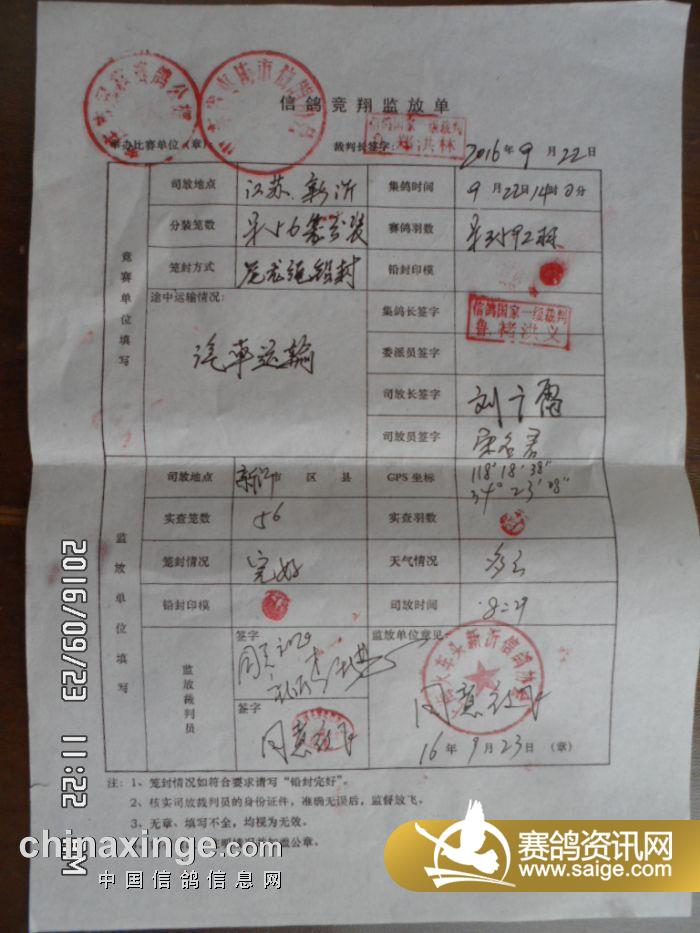 信鸽竞翔监放单
举办比赛单位(章)
裁判长签字:
信鸽国家一级裁判
2016年9月22日
竞赛单位填写
司放地点 江苏.新沂 集鸽时间 9月22日14时0分
分装笼数 赛鸽羽数
笼封方式 尼龙绳铅封 铅封印模
途中运输情况: 汽車运输
集鸽长签字 信鸽国家一级裁判 鲁 褚洪义
委派员签字
司放长签字
司放员签字
监放单位填写
司放地点 新沂市 区 县 GPS 坐标 118°18′38″ 34°23′28″
实查笼数 56 实查羽数
笼封情况 完好 天气情况 多云
铅封印模 司放时间 8:29
监放裁判员
签字
签字 同意放飞
监放单位意见:
火车头新沂信鸽协会
同意放飞
16年9月23日 (章)
注:1、笼封情况如符合要求请写“铅封完好”。
2、核实司放裁判员的身份证件,准确无误后,监督放飞。
3、无章、填写不全,均视为无效。
加盖公章。
2016/09/23 11:22 AM
chinaxinge.com
中国信鸽信息网
赛鸽资讯网
www.saige.com